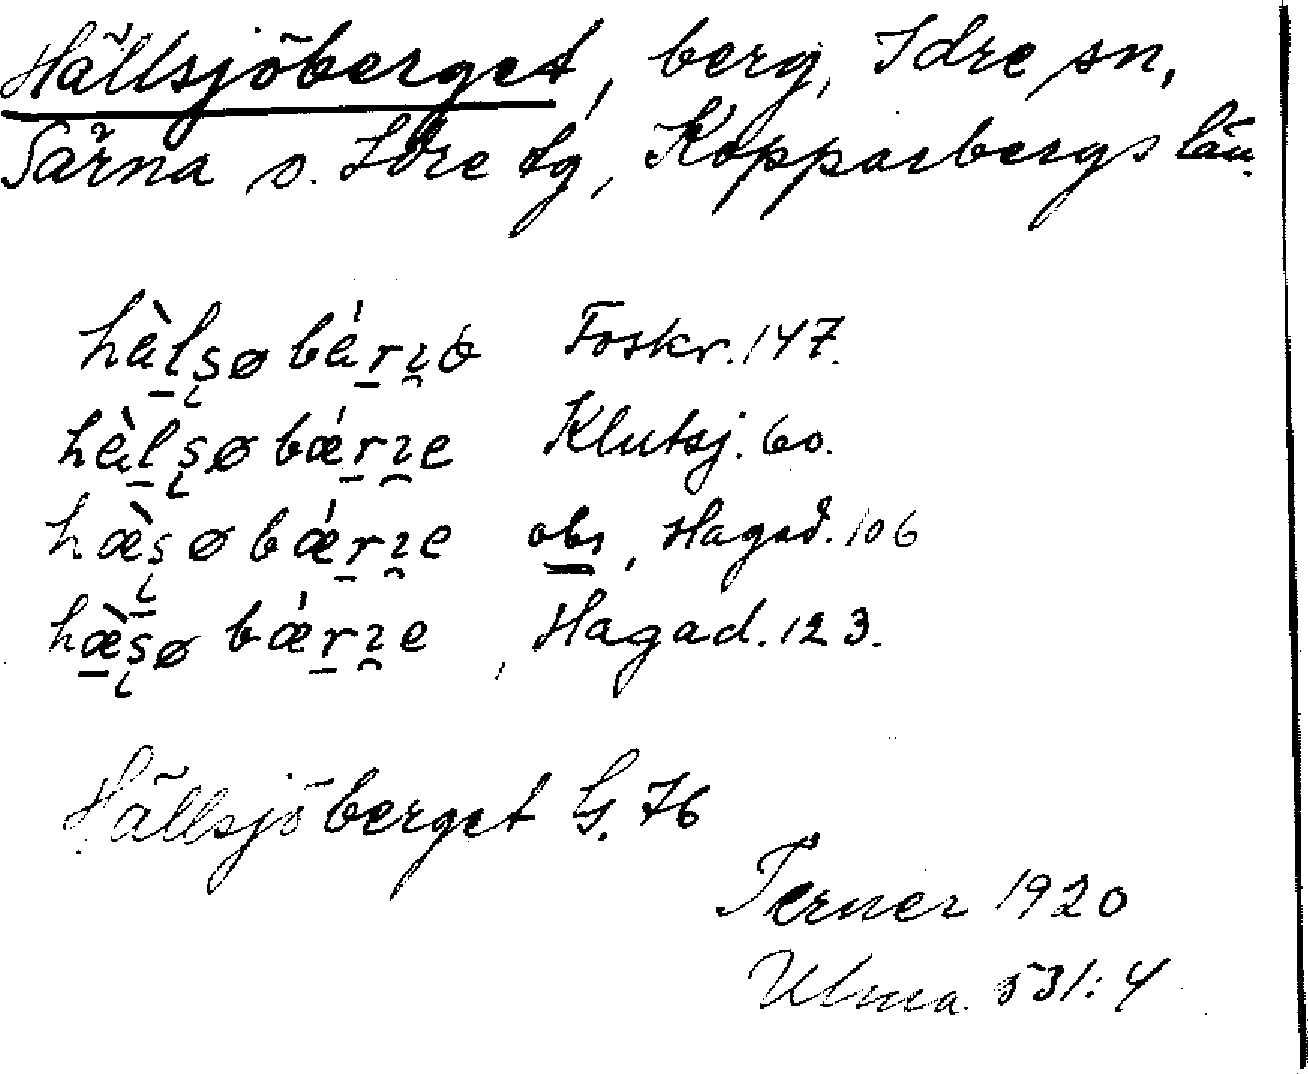 Hällsjöberget, berg, Idre sn,
Särna o. Idre tg, Kopparbergs län.
hæ̀lşøbǽrʐə Foskr. 147.
hæ̀lşøbǽrʐe Klutsj. 60.
hæ̀şøbǽrʐe obs, Hagad. 106
hæ̀şøbǽrʐe, Hagad. 123.
Hällsjöberget G. 76
Terner 1920
Ulma 531:4